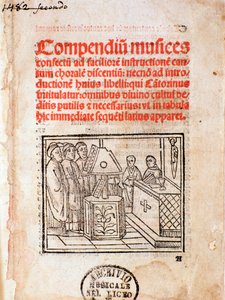 1482 secondo
Compendiū musices
confectū ad faciliorē instructionē can
tum choralē discentiū: necnō ad intro
ductionē huius libelli: qui Cātorinus
intitulatur: omnibus diuino cultui de
ditis putilis et necessarius: vt in tabula
hic immediate sequēti latius apparet.
A
ARCHIVIO
MUSICALE
NEL LICEO